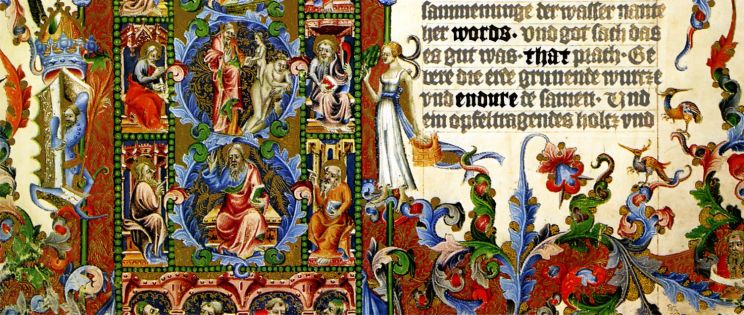 sammenunge der wasser nante
her words. vnd got sach das
es gut was. that prach. Ge
bere die erde grunende wurze
vnd endure de samen. Und
ein opfeltragendes holtz vnd